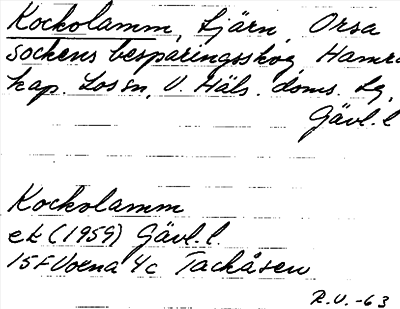 Kockolamm, tjärn, Orsa
sockens besparingsskog Hamra
kap. Lossn, V. Häls. doms. sg,
Gävl. l
Kockolamm
ek (1959) Gävl. l.
15F Voxna 4c Tackåsen
R.V. -63